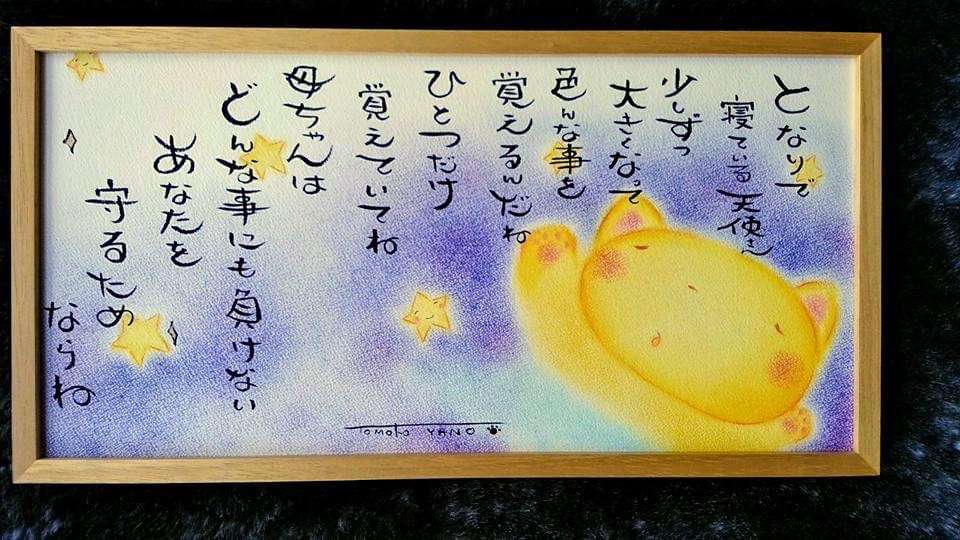 となりで
寝ている天使さん
少しずつ
大きくなって
色んな事を
覚えるんだね
ひとつだけ
覚えていてね
母ちゃんは
どんな事にも負けない
あなたを
守るため
ならね
TOMOYO YANO